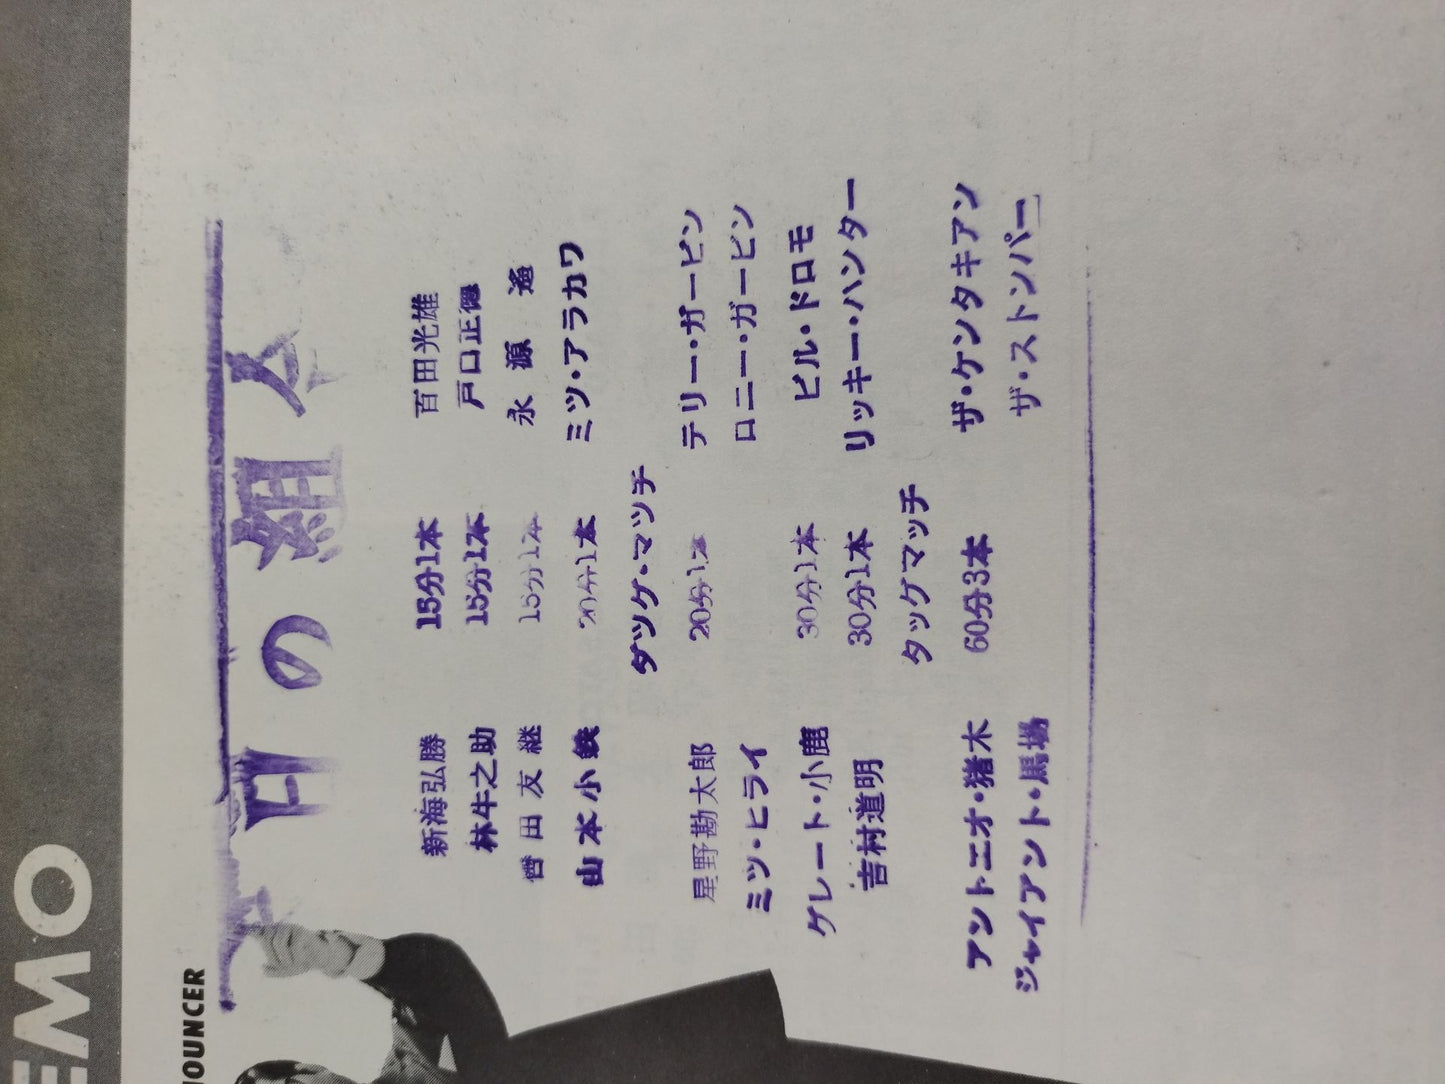 EMO
NOUNCER
本日の組合
新海弘勝 15分1本 百田光雄
林牛之助 15分1本 戸口正徳
曾田友継 15分1本 永源遙
山本小鉄 20分1本 ミツ・アラカワ
タツグ・マツチ
星野勘太郎 20分1本 テリー・ガービン
ミツ・ヒライ ロニー・ガービン
グレート・小鹿 30分1本 ビル・ドロモ
吉村道明 30分1本 リッキー・ハンター
タッグマッチ
アントニオ・猪木 60分3本 ザ・ケンタキアン
ジャイアント・馬場 ザ・ストンパー